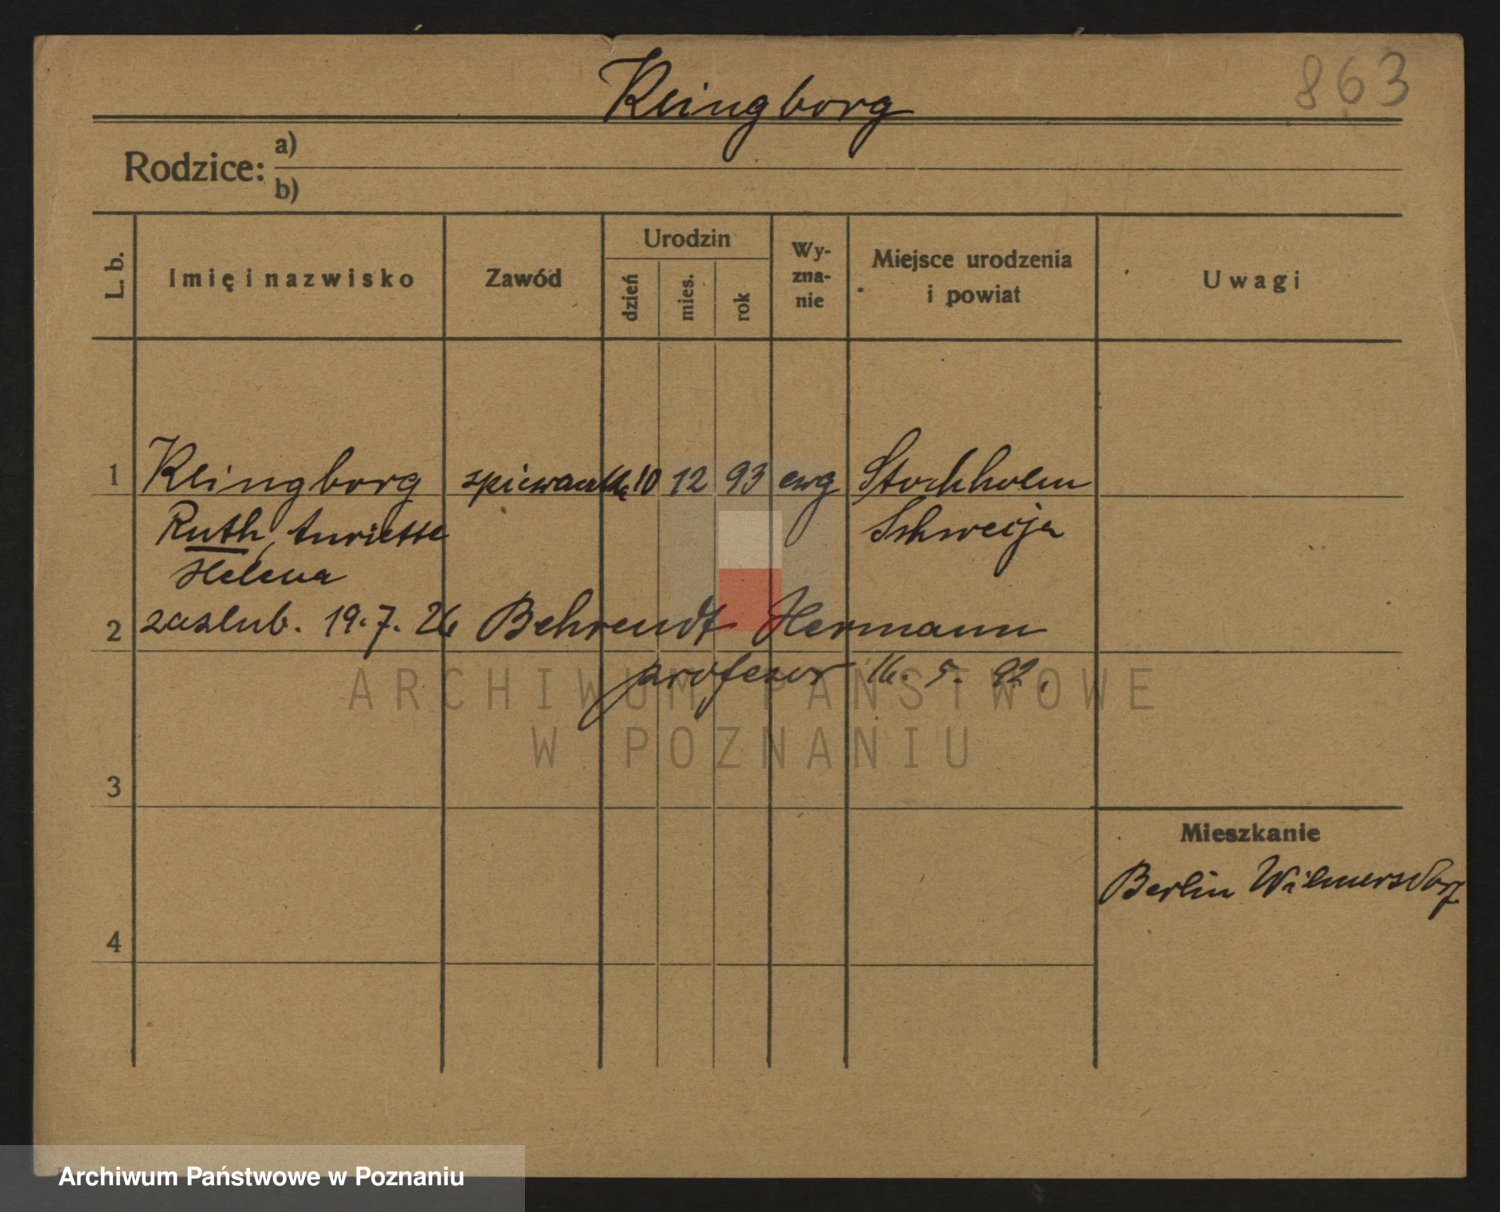 863
Klingborg
Rodzice: a)
b)
L. b.
Imię i nazwisko
Zawód
Urodzin
dzień
mies.
rok
Wy-
zna-
nie
Miejsce urodzenia
i powiat
Uwagi
1 Klingborg śpiewaczka 10 12 93 ewg Stockholm
Ruth, Henriette Schwecja
Helena
2 zaślub. 19.7.26 Behrendt Hermann
profesor 16. 5. 92.
ARCHIWUM PAŃSTWOWE
W POZNANIU
3
Mieszkanie
Berlin Wilmersdorf
4
Archiwum Państwowe w Poznaniu